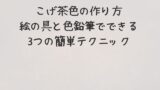 こげ茶色の作り方
絵の具と色鉛筆でできる
3つの簡単テクニック